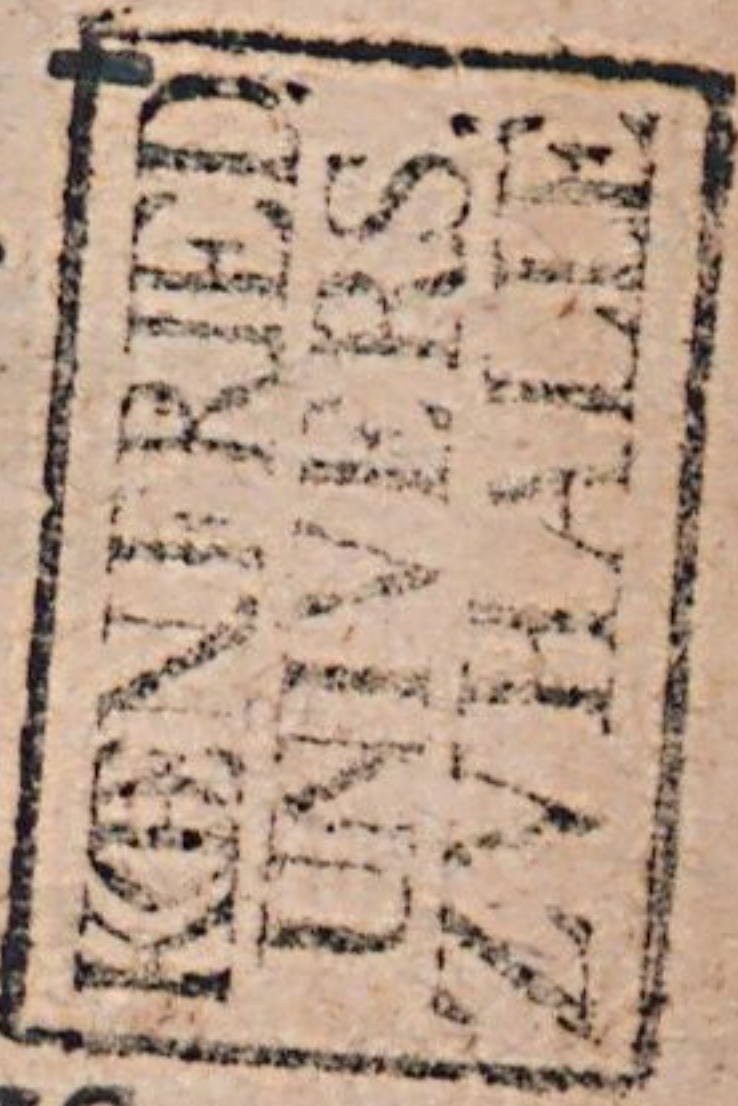 KŒN. FRIED.
UNIVERS.
ZV HALLE